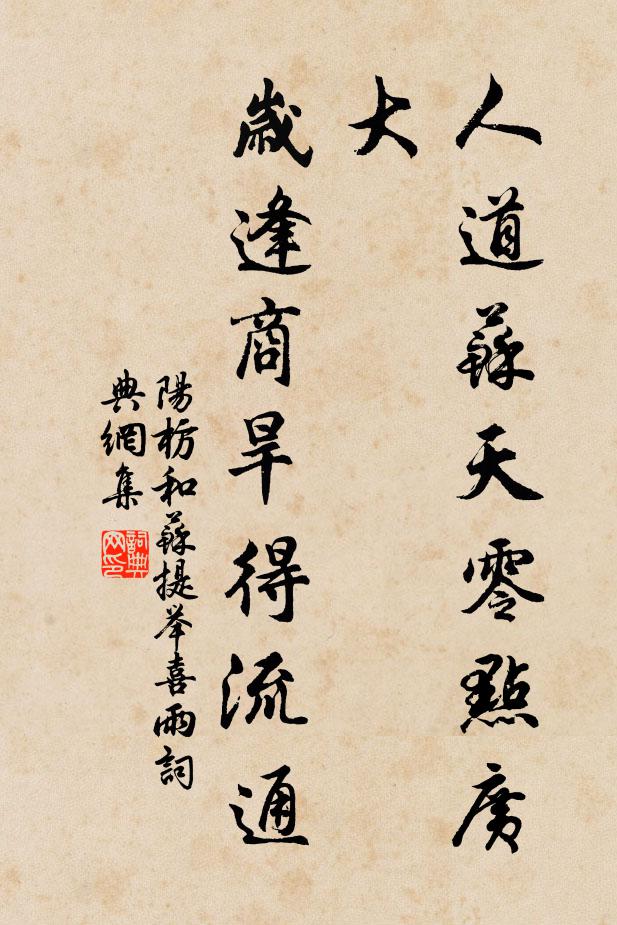 人道蘇天零點廣
大
歲逢商旱得流通
陽枋和蘇提举喜雨詞
典網集
詞典
网印